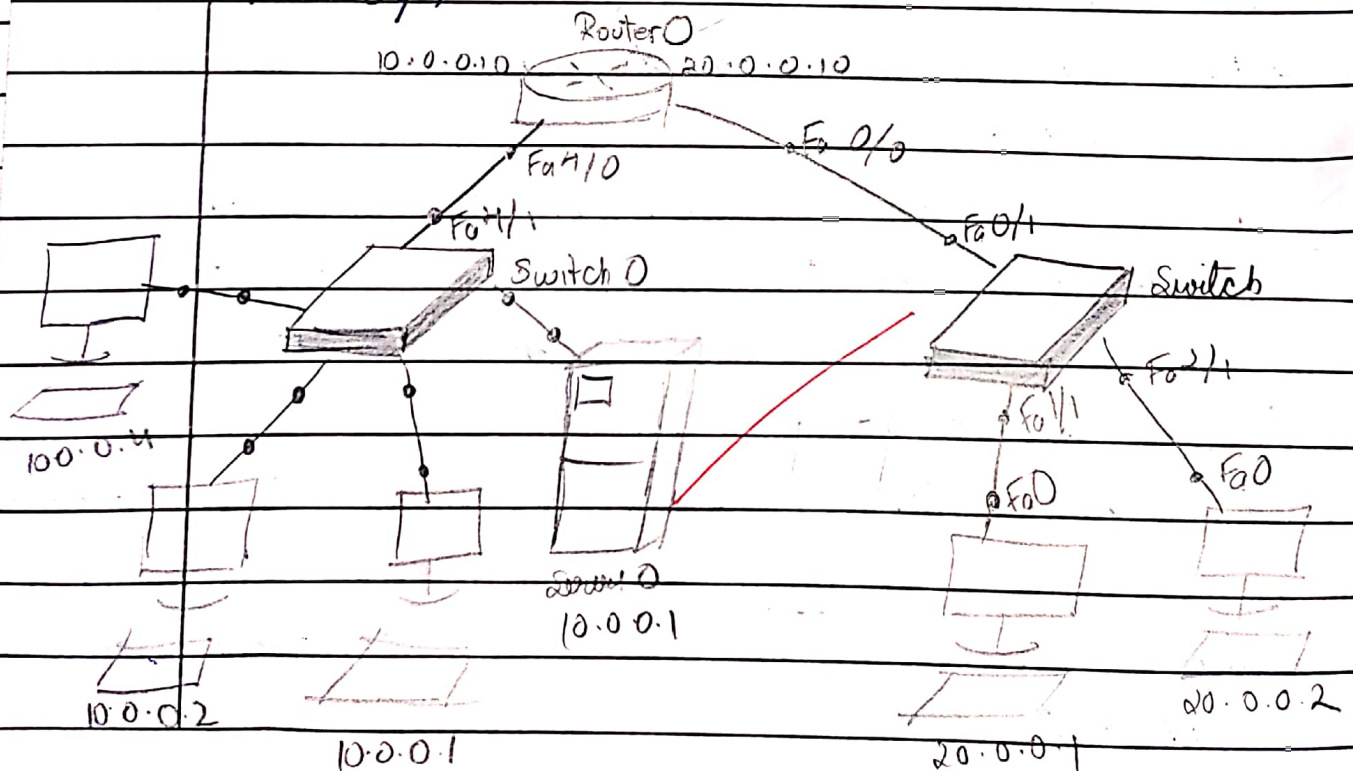 Router0
10.0.0.10
20.0.0.10
Fa4/0
Fa 0/0
Fa4/1
Fa0/1
Switch 0
Switch
Fa2/1
Fa1/1
10.0.0.4
Fa0
Fa0
Server 0
10.0.0.1
10.0.0.2
20.0.0.2
10.0.0.1
20.0.0.1